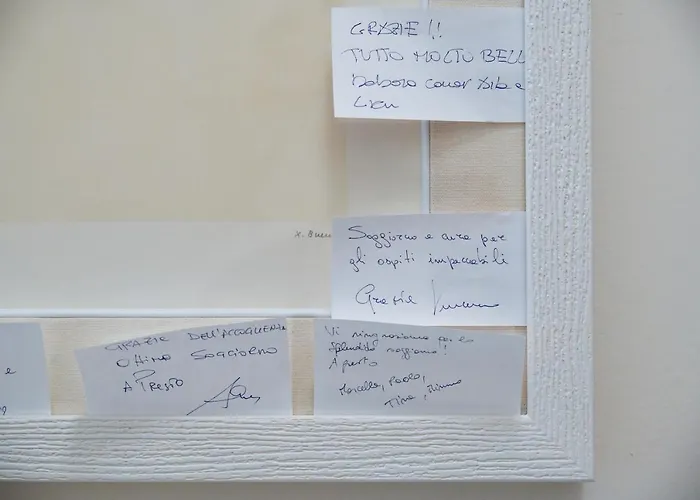 GRAZIE!!
TUTTO MOLTO BELL
Soggiorno e cura per
gli ospiti impeccabili
Grazie
GRAZIE DELL'ACCOGLIENZA
OTTIMO SOGGIORNO
A PRESTO
Vi ringraziamo per lo
splendido soggiorno!
A presto
Marcella, Paolo,
Tina,
e